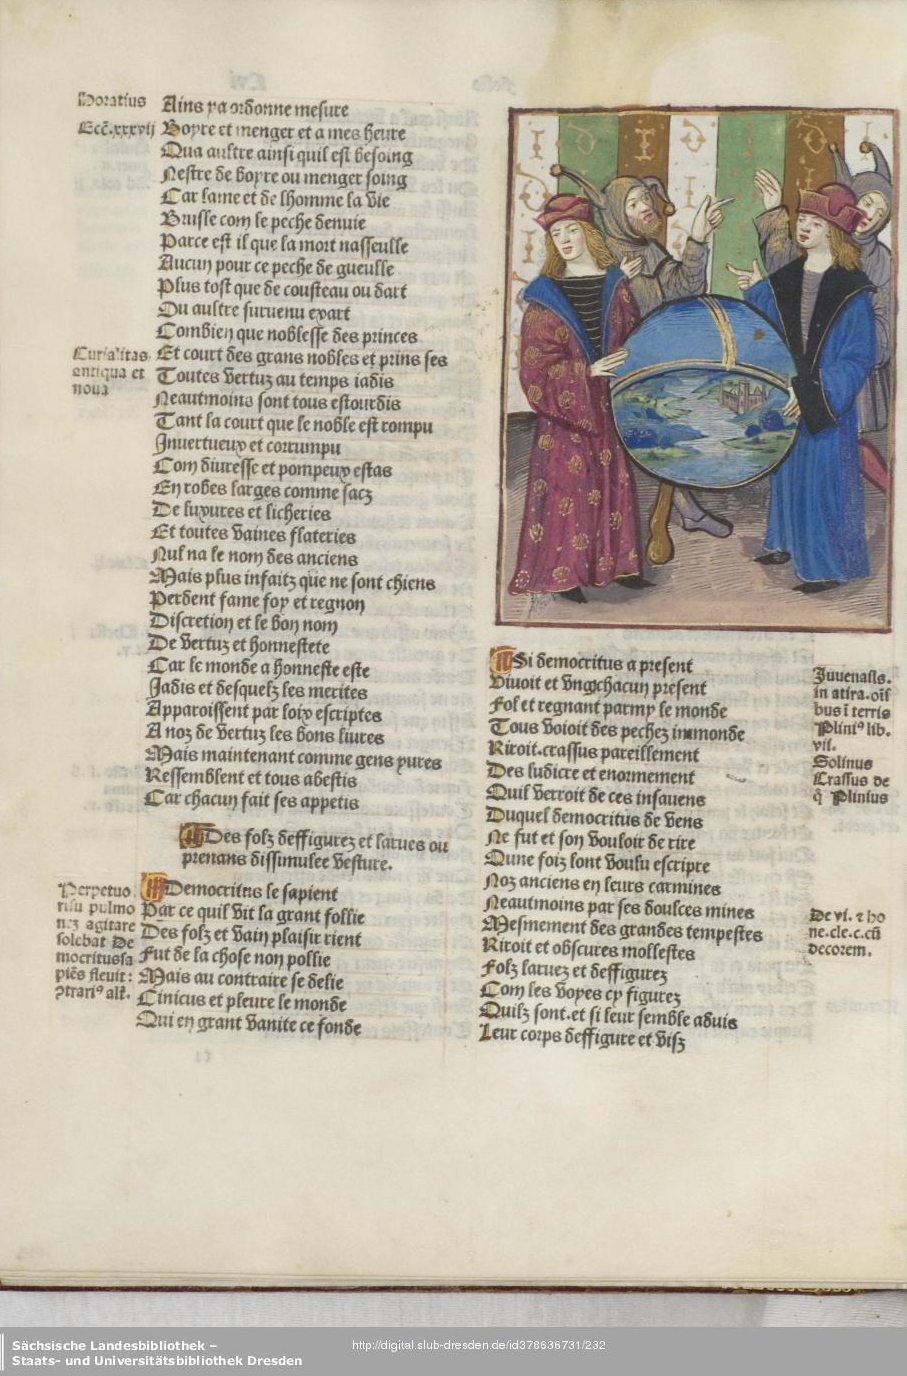 Horatius
Ains y a ordonne mesure
Ecc̄.xxxvij
Boyre et menger et a mes heure
Qua aultre ainsi quil est besoing
Nestre de boyre ou menger soing
Car lame et de lhomme la vie
Brusle com le peche denuie
Parce est il que la mort nasseulle
Aucun pour ce peche de gueulle
Plus tost que de cousteau ou dart
Ou aultre suruenu epart
Combien que noblesse des princes
Curialitas
antiqua et
noua
Et court des grans nobles et prins ses
Toutes vertuz au temps iadis
Neautmoins sont tous estourdis
Tant la court que le noble est rompu
Inuertueux et corrumpu
Com diuresse et pompeux estas
En robes larges comme sacz
De luxures et licheries
Et toutes vaines flateries
Nul na le nom des anciens
Mais plus infaitz que ne sont chiens
Perdent fame foy et regnon
Discretion et le bon nom
De vertuz et honnestete
Car le monde a honneste este
Jadis et desquelz les merites
Apparoissent par loix escriptes
A noz de vertuz les bons liures
Mais maintenant comme gens yures
Ressemblent et tous abestis
Car chacun fait ses appetis
Des folz deffigurez et larues ou
prenans dissimulee vesture.
Perpetuo
risu pulmo
nez agitare
solebat De
mocritus sa
piēs fleuit:
ꝯtrariꝰ alt̄.
Democritus le sapient
Par ce quil vit la grant follie
Des folz et vain plaisir rient
Fut de la chose non pollie
Mais au contraire se delie
Cinicus et pleure le monde
Qui en grant vanite ce fonde
Si democritus a present
Viuoit et vng chacun present
Fol et regnant parmy le monde
Tous voioit des pechez immonde
Riroit.crassus pareillement
Des ludicre et enormement
Quil verroit de ces insauens
Duquel democritus de vens
Ne fut et son vouloir de rire
Qune foiz lont voulu escripre
Noz anciens en leurs carmines
Neautmoins par ses doulces mines
Mesmement des grandes tempestes
Riroit et obscures mollestes
Folz laruez et deffigurez
Com les voyes cy figurez
Quilz sont.et si leur semble aduis
Leur corps deffigure et visz
Juuenalis.
in atira.oīs
bus ī terris
Pliniꝰ lib.
vii.
Solinus
Crassus de
q̄ Plinius
De vi. ⁊ ho
ne.cle.c.cū
decorem.
Sächsische Landesbibliothek –
Staats- und Universitätsbibliothek Dresden
http://digital.slub-dresden.de/id378636731/232